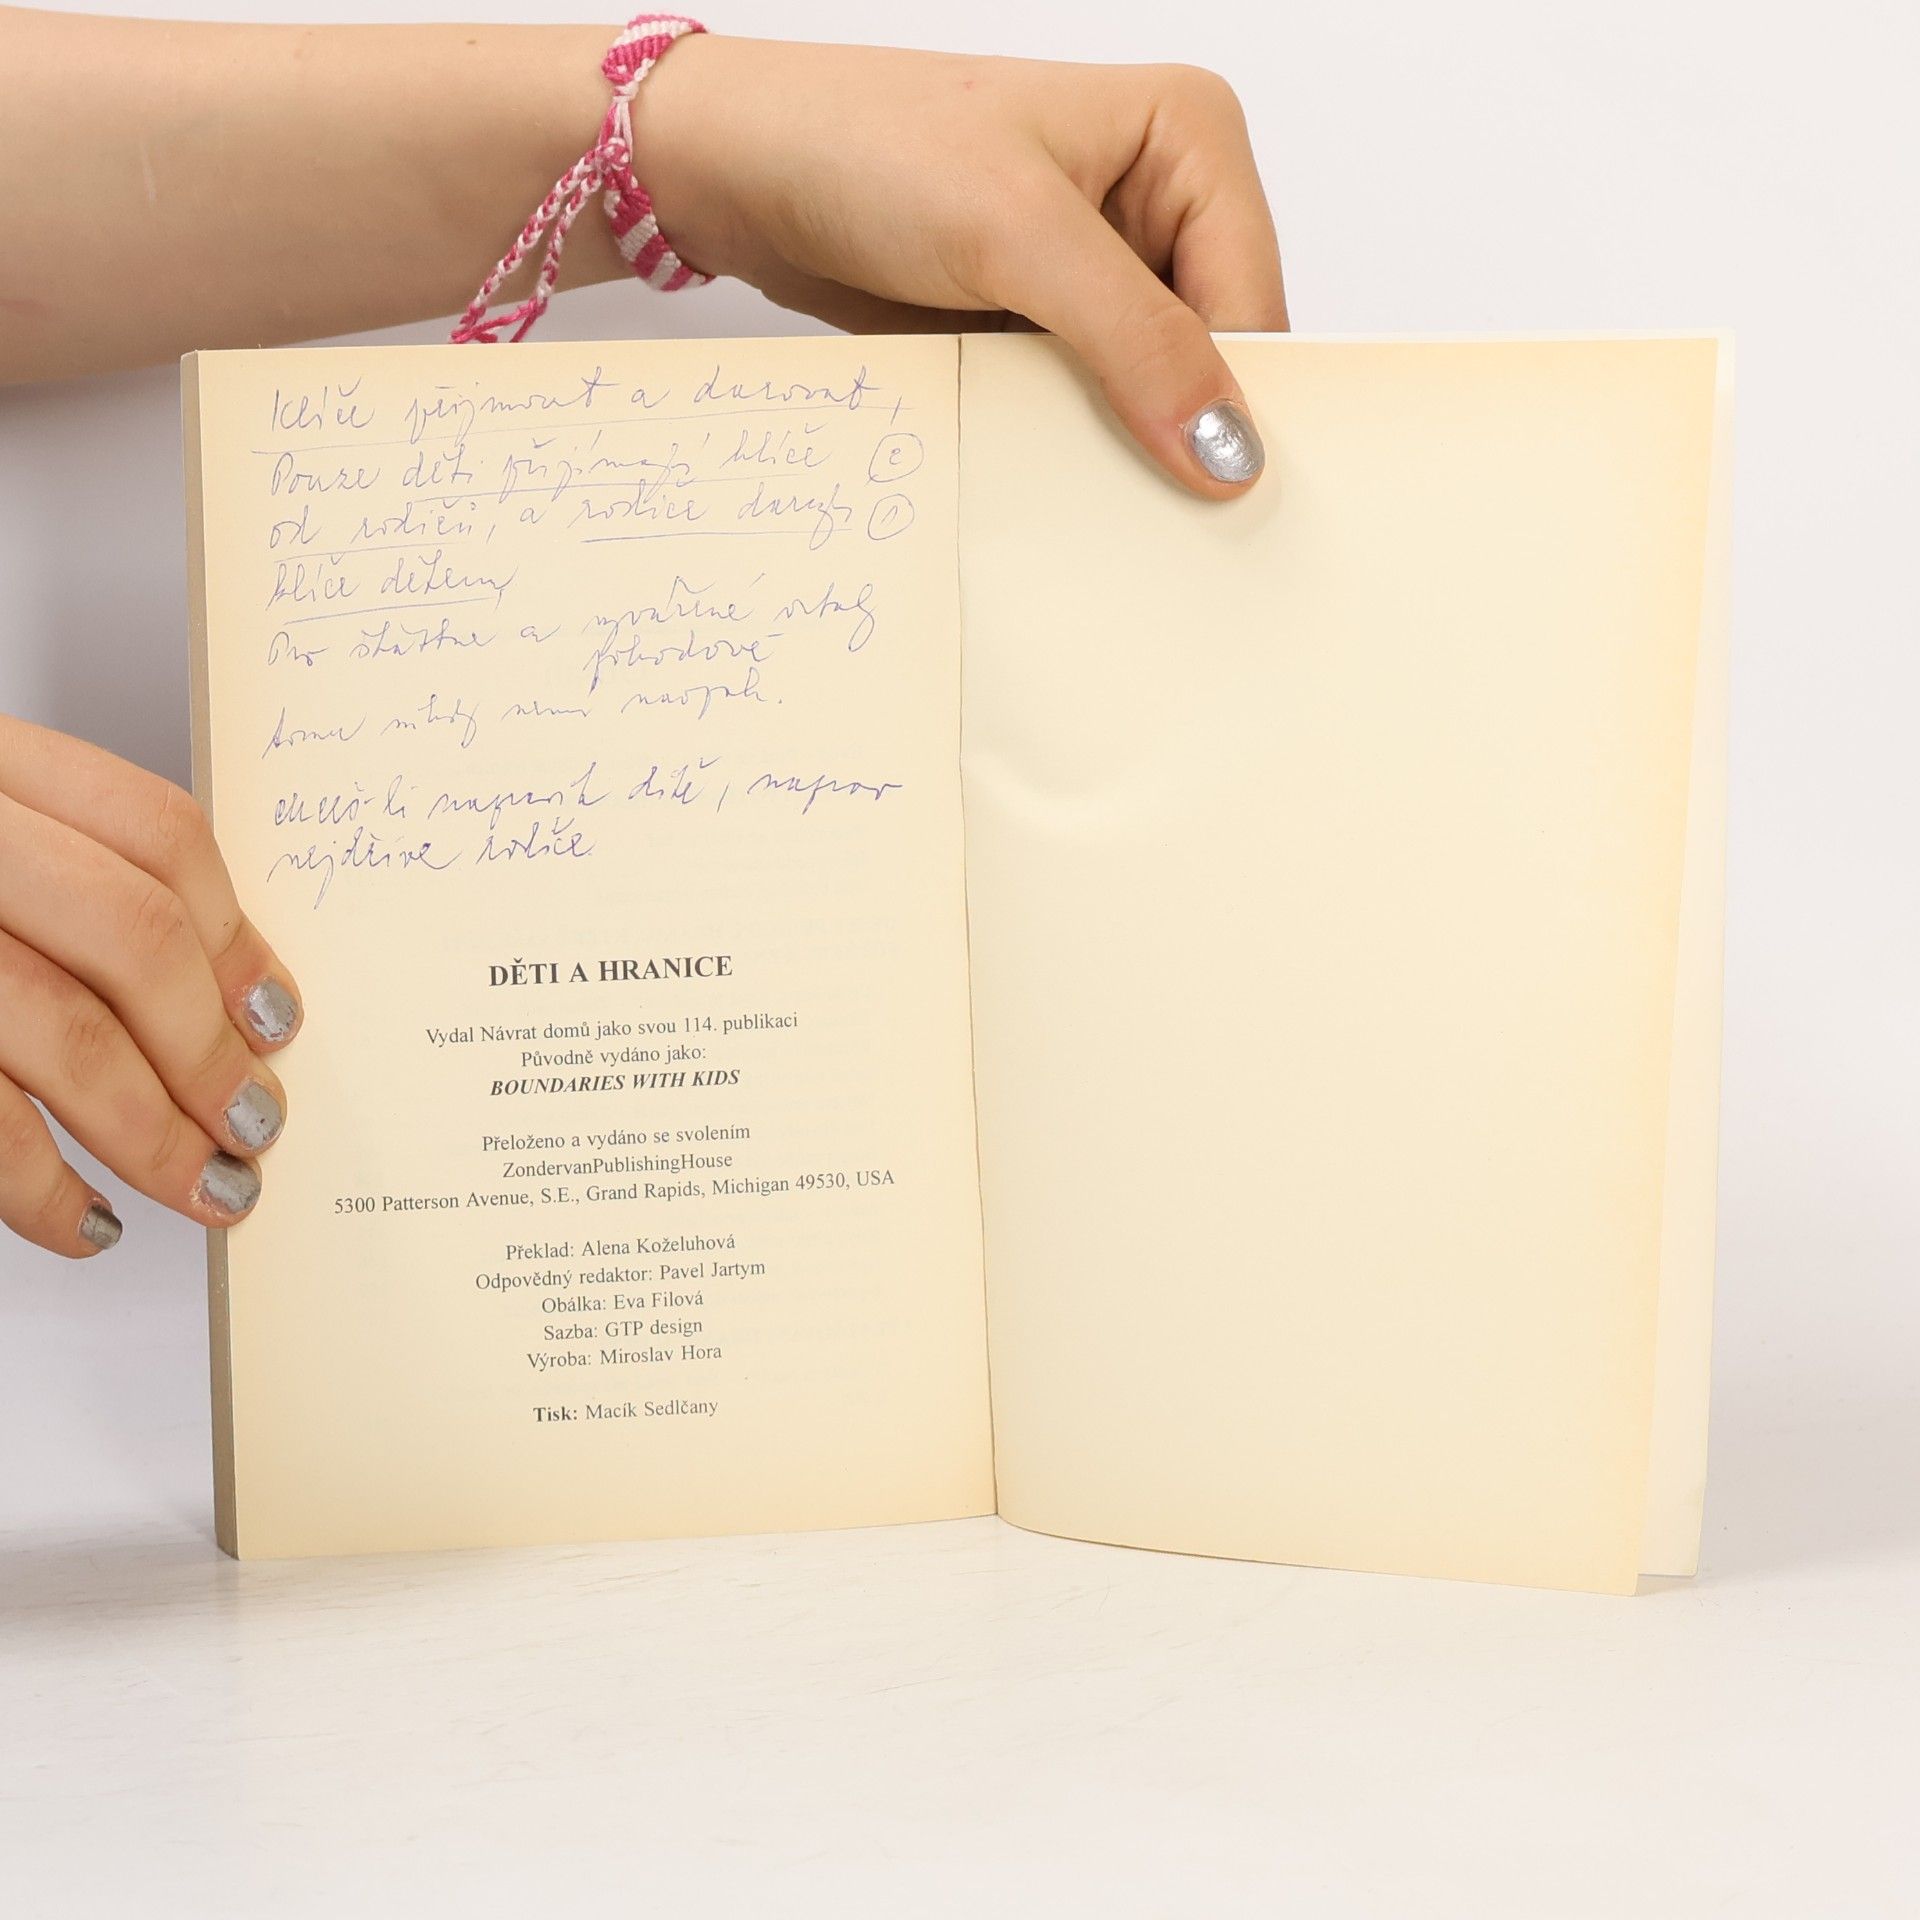 Klíče přijmout a darovat,
Pouze děti přijímají klíče ②
od rodičů, a rodiče darují ①
klíče dětem,
Pro šťastné a vyvážené vztahy
pohodové
tomu nikdy není naopak.
chceš-li napravit dítě, naprav
nejdříve rodiče.
DĚTI A HRANICE
Vydal Návrat domů jako svou 114. publikaci
Původně vydáno jako:
BOUNDARIES WITH KIDS
Přeloženo a vydáno se svolením
ZondervanPublishingHouse
5300 Patterson Avenue, S.E., Grand Rapids, Michigan 49530, USA
Překlad: Alena Koželuhová
Odpovědný redaktor: Pavel Jartym
Obálka: Eva Filová
Sazba: GTP design
Výroba: Miroslav Hora
Tisk: Macík Sedlčany